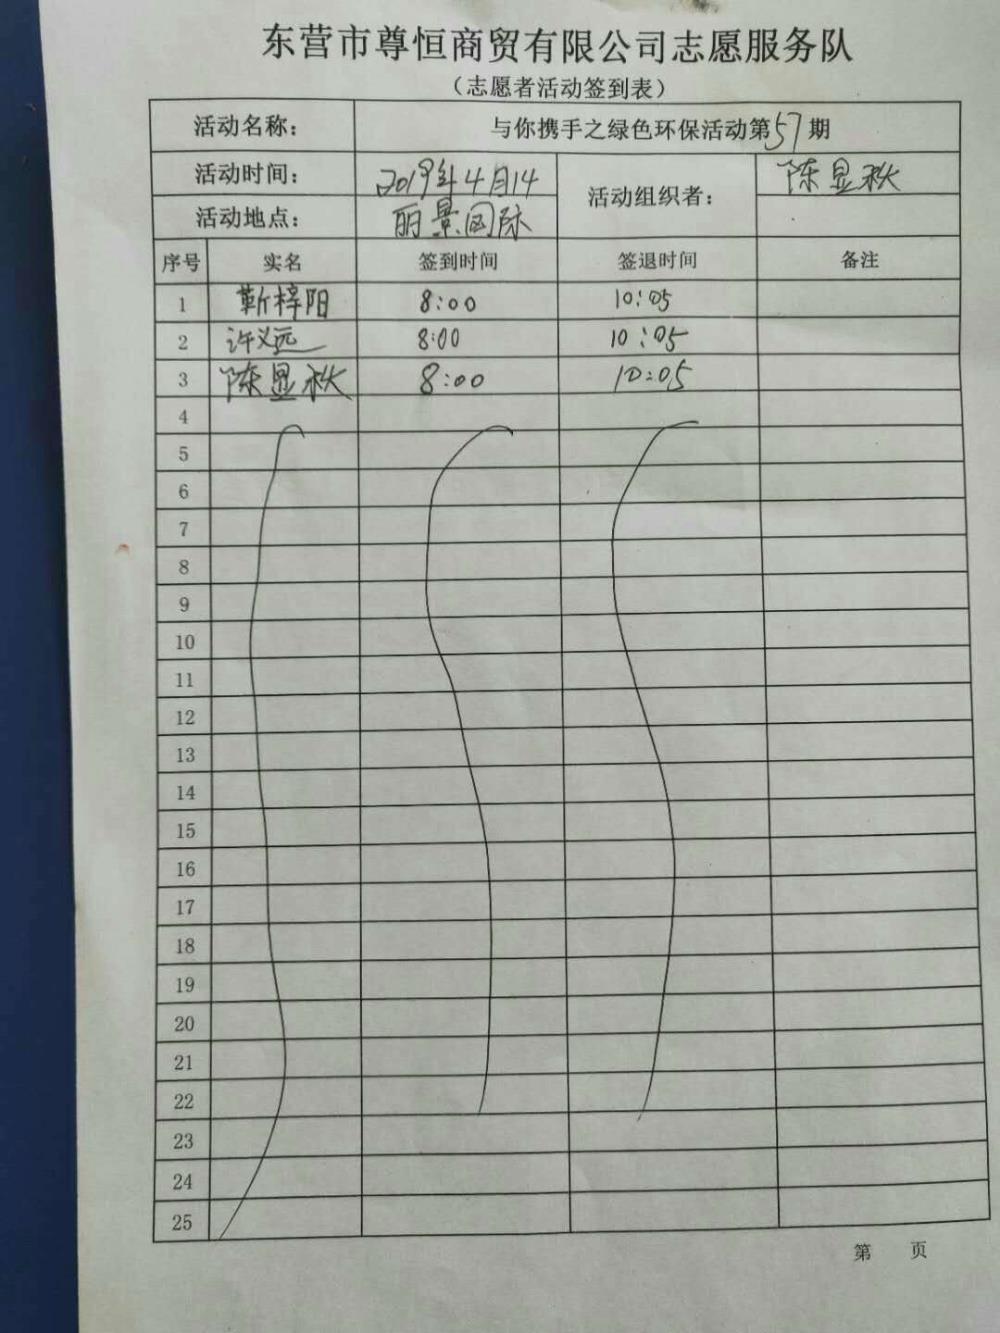 东营市尊恒商贸有限公司志愿服务队
（志愿者活动签到表）
活动名称： 与你携手之绿色环保活动第57期
活动时间： 2019年4月14 活动组织者： 陈显秋
活动地点： 丽景国际
序号 实名 签到时间 签退时间 备注
1 靳梓阳 8:00 10:05
2 许义远 8:00 10:05
3 陈显秋 8:00 10:05
4
5
6
7
8
9
10
11
12
13
14
15
16
17
18
19
20
21
22
23
24
25
第 页